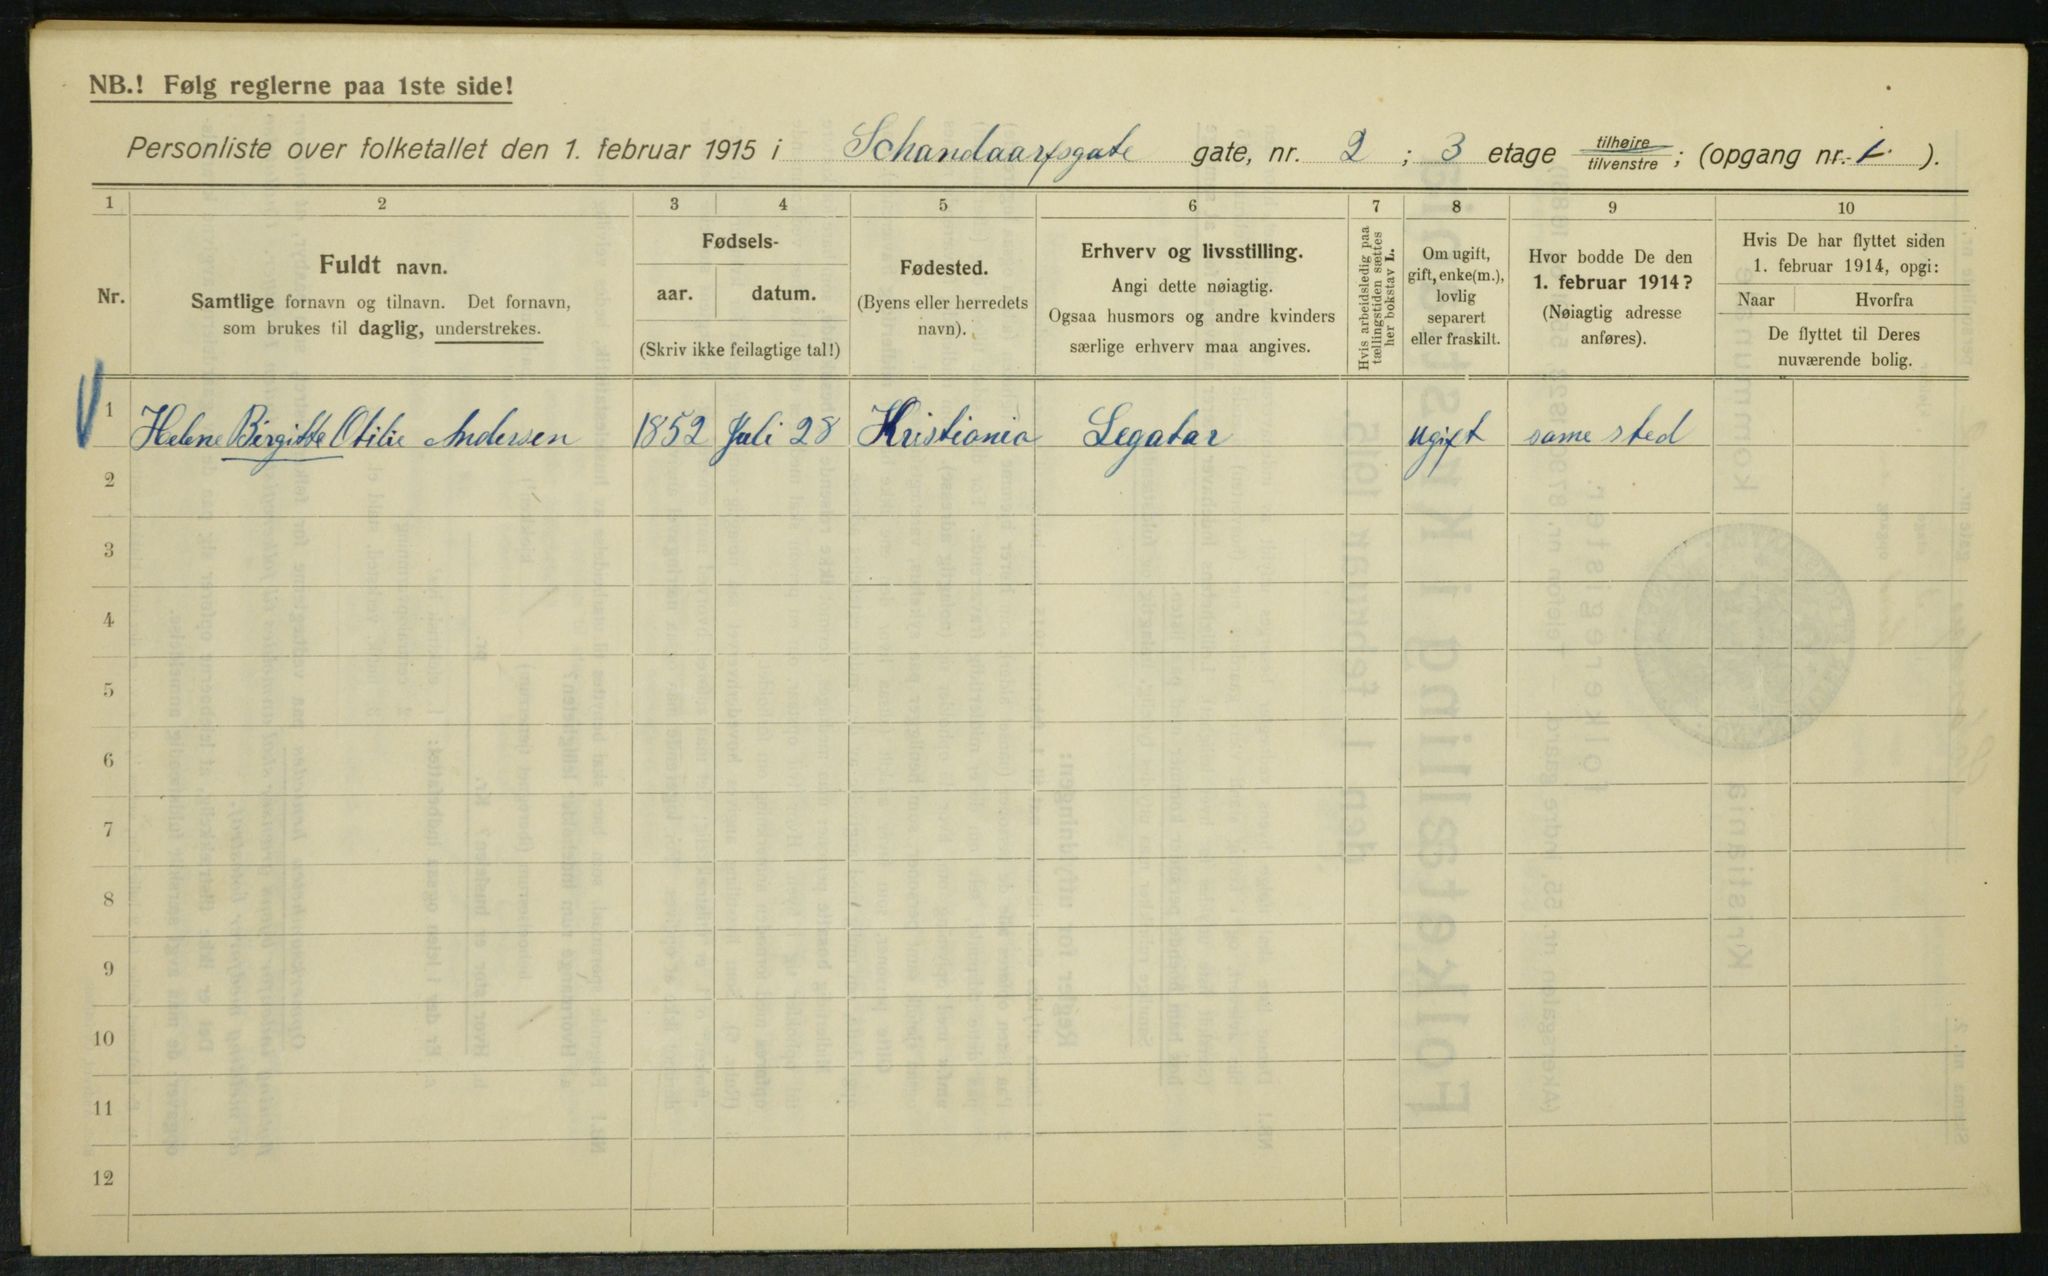 NB.! Følg reglerne paa 1ste side!
Personliste over folketallet den 1. februar 1915 i Schandaarfsgate gate, nr. 2 ; 3 etage tilhøire tilvenstre ; (opgang nr. 1. ).
1 2 3 4 5 6 7 8 9 10
Nr.
Fuldt navn.
Samtlige fornavn og tilnavn. Det fornavn,
som brukes til daglig, understrekes.
Fødsels-
aar. datum.
(Skriv ikke feilagtige tal!)
Fødested.
(Byens eller herredets
navn).
Erhverv og livsstilling.
Angi dette nøiagtig.
Ogsaa husmors og andre kvinders
særlige erhverv maa angives.
Hvis arbeidsledig paa
tællingstiden sættes
her bokstav L.
Om ugift,
gift, enke(m.),
lovlig
separert
eller fraskilt.
Hvor bodde De den
1. februar 1914?
(Nøiagtig adresse
anføres).
Hvis De har flyttet siden
1. februar 1914, opgi:
Naar Hvorfra
De flyttet til Deres
nuværende bolig.
1 Helene Birgitte Otilie Andersen 1852 Juli 28 Kristiania Legatar ugift samme sted
2
3
4
5
6
7
8
9
10
11
12